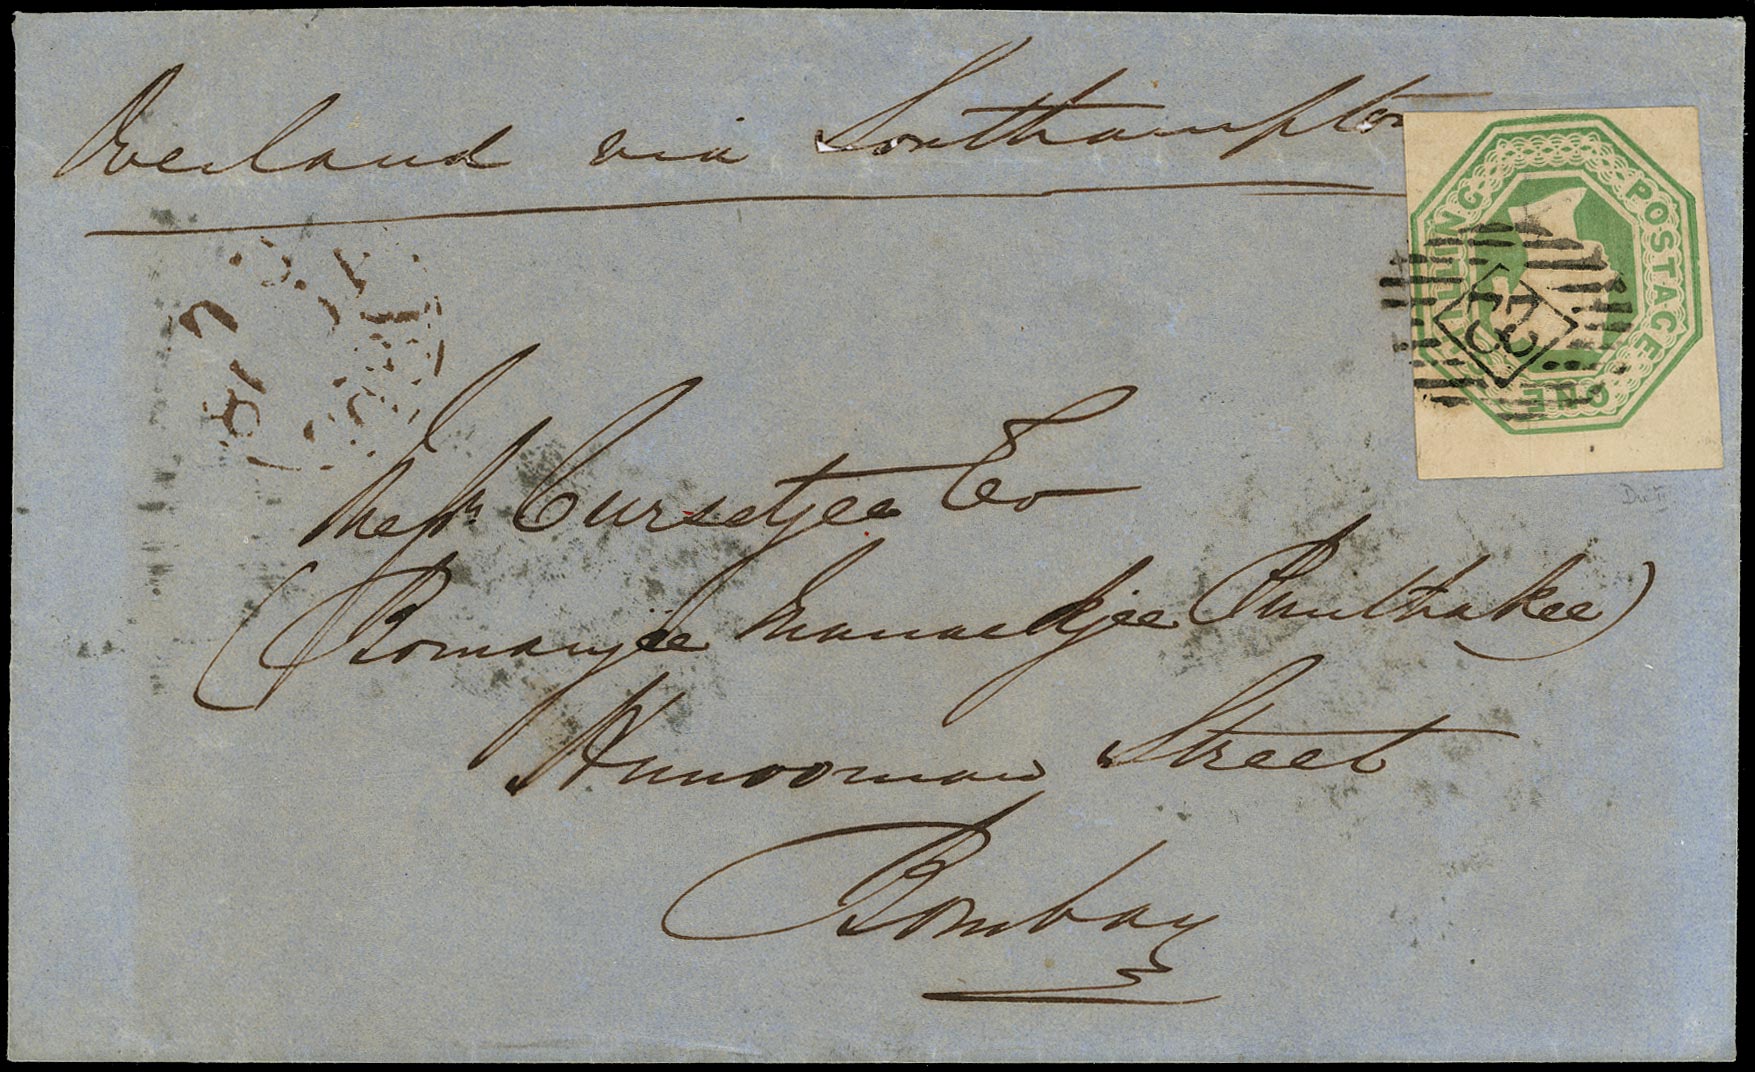 Overland via Southampton
POSTAGE
ONE
SHILLING
Messrs Cursetjee & Co
(Bomanjee Manackjee Punthakee)
Hunooman Street
Bombay